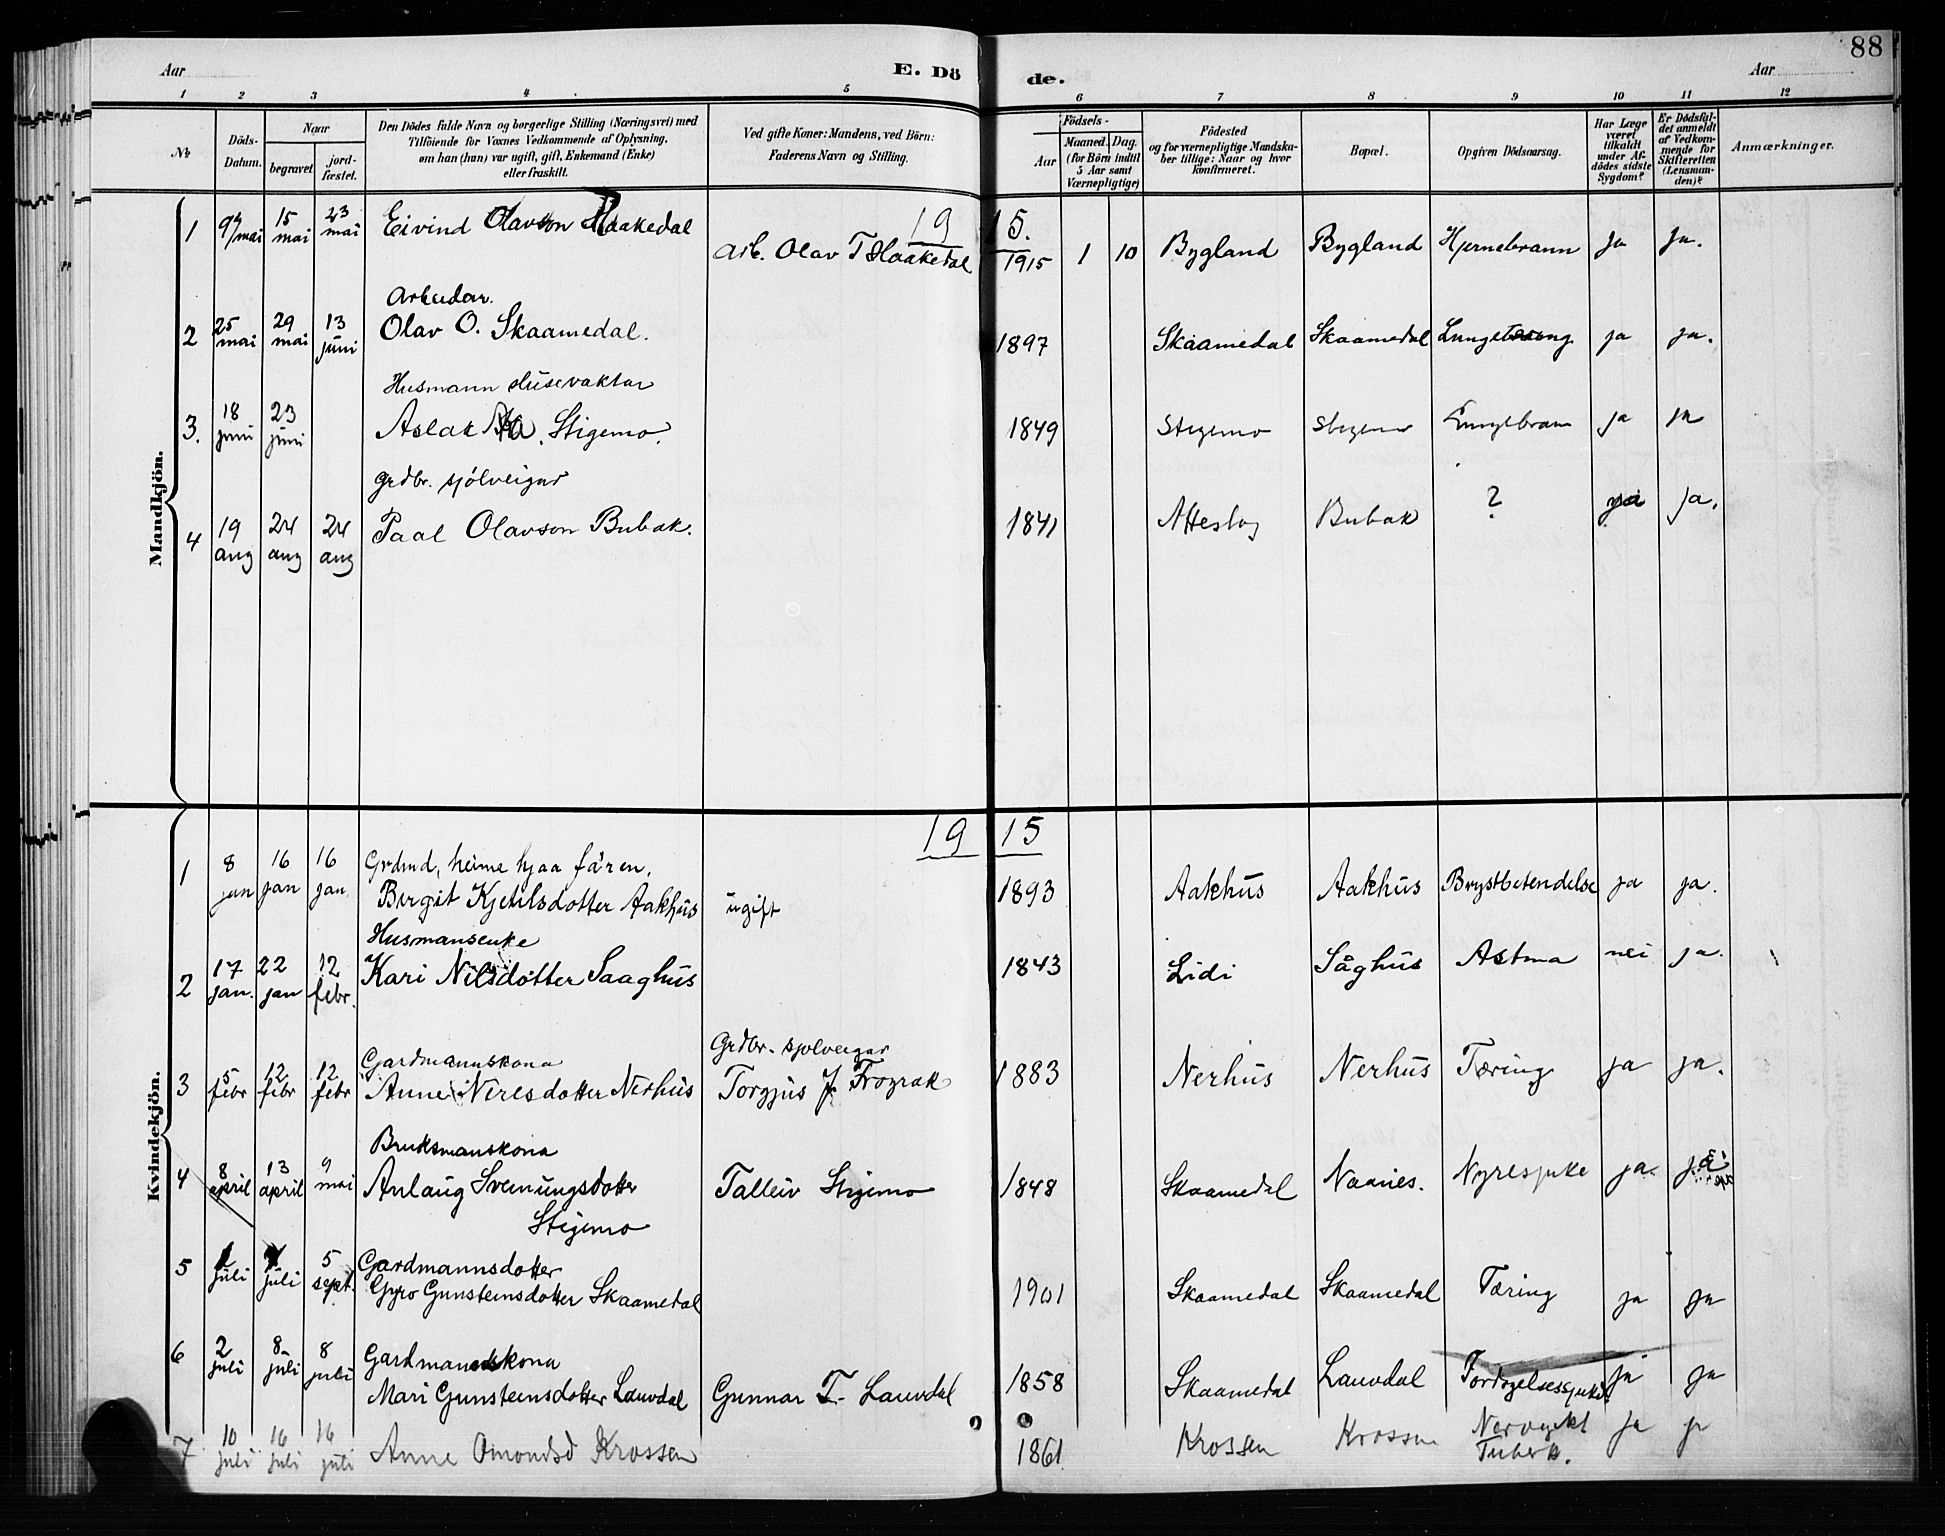 88
Aar E. Dö de. Aar
1 2 3 4 5 6 7 8 9 10 11 12
№
Döds-Datum.
Naar
begravet
jord-fæstet.
Den Dödes fulde Navn og borgerlige Stilling (Næringsvei) med
Tilföiende for Voxnes Vedkommende af Oplysning,
om han (hun) var ugift, gift, Enkemand (Enke)
eller fraskilt.
Ved gifte Koner: Mandens, ved Börn:
Faderens Navn og Stilling.
Födsels-
Aar
Maaned. Dag.
(for Börn indtil
5 Aar samt
Værnepligtige)
Födested
og for værnepligtige Mandska-
ber tillige: Naar og hvor
konfirmeret.
Bopæl.
Opgiven Dödsaarsag.
Har Læge
været
tilkaldt
under Af-
dödes sidste
Sygdom?
Er Dödsfal-
det anmeldt
af Vedkom-
mende for
Skifteretten
(Lensman-
den)?
Anmærkninger.
Mandkjön.
19 15.
1 9/mai 15 mai 23 mai Eivind Olavson Haakedal Arb. Olav T Haakedal 1915 1 10 Bygland Bygland Hjernebrann ja ja.
Arbeidar.
2 25 mai 29 mai 13 juni Olav O. Skaamedal. 1897 Skaamedal Skaamedal ja ja.
Husmann slusevaktar
3. 18 juni 23 juni Aslak Stigemo. 1849 Stigemo Stigemo Lungebram ja ja
grdbr. sjölveigar
4 19 aug 24 aug 24 aug Paal Olavson Bubak. 1841 Bubak ? ja ja.
Kvindekjön.
19 15
1 8 jan 16 jan 16 jan Grdmd, heime hjaa fåren.
Birgit Kjetilsdotter Aakhus ugift 1893 Aakhus Aakhus Brystbetendelse ja ja.
Husmansenke
2 17 jan. 22 jan 12 febr. Kari Nilsdotter Saaghus 1843 Lidi Såghus Astma nei ja.
Gardmannskona Grdbr. sjolveigar
3 5 febr 12 febr 12 febr Anne Neresdotter Nerhus Torgjus J. Frøyrak 1883 Nerhus Nerhus Tæring ja ja.
Bruksmanskona
4 8 april 13 april 9 mai Anlaug Sveinungsdotter Talleiv Stigemo 1848 Skaamedal Naanes. Nyresjuke ja. ja
Stigemo
5 juli juli 5 sept. Gardmannsdotter
Gyro Gunsteinsdotter Skaamedal 1901 Skaamedal Skaamedal Tæring ja ja
6 2 juli 8 juli 8 juli Gardmannskona
Mari Gunsteinsdotter Lauvdal Gunnar T. Lauvdal 1858 Skaamedal Lauvdal Fordøyelsessjuke ja ja
7 10 juli 16 juli 16 juli Anne Omondsd Krossen 1861 Krossen Krossen Tuberk. ja ja